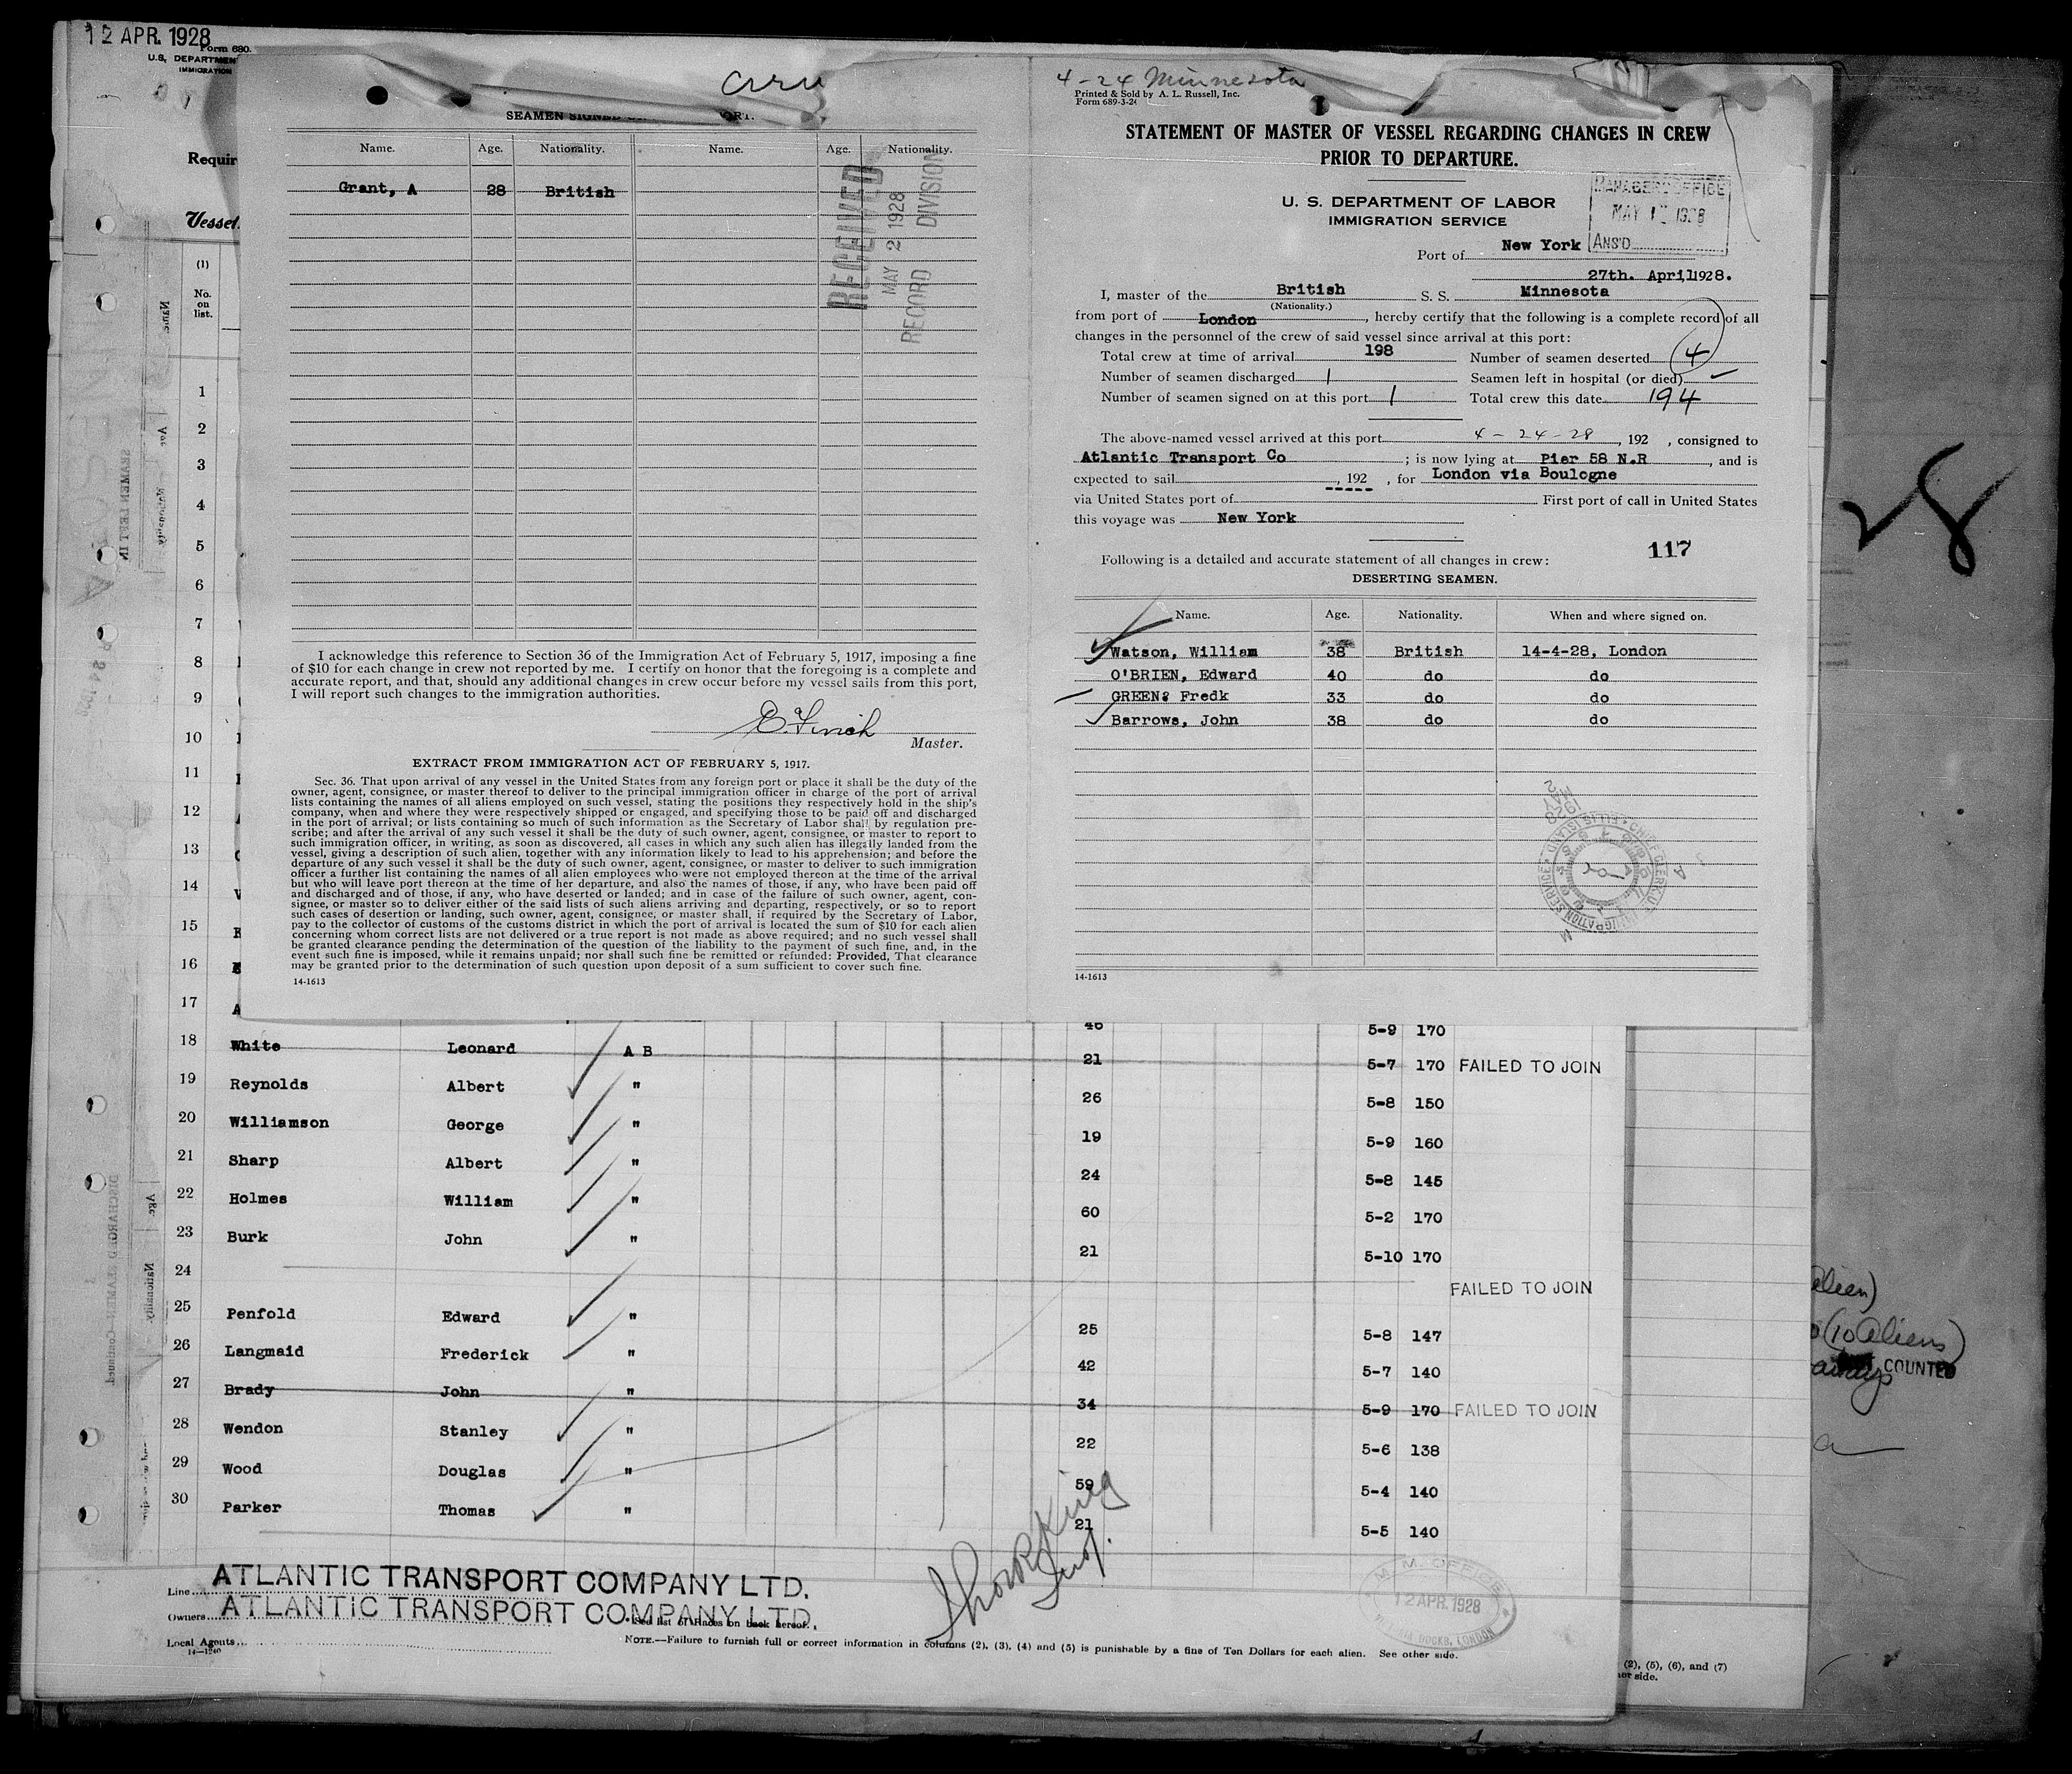 12 APR. 1928
Form 680.
U.S. DEPARTMEN
IMMIGRATION
Requir
Vessel
(1)
No. on list.
1
2
3
4
5
6
7
8
9
10
11
12
13
14
15
16
17
SEAMEN SIGNED
Name. Age. Nationality. Name. Age. Nationality.
Grant, A 28 British
RECEIVED
MAY 2 1928
RECORD DIVISION
I acknowledge this reference to Section 36 of the Immigration Act of February 5, 1917, imposing a fine
of $10 for each change in crew not reported by me. I certify on honor that the foregoing is a complete and
accurate report, and that, should any additional changes in crew occur before my vessel sails from this port,
I will report such changes to the immigration authorities.
E. Finch
Master.
EXTRACT FROM IMMIGRATION ACT OF FEBRUARY 5, 1917.
Sec. 36. That upon arrival of any vessel in the United States from any foreign port or place it shall be the duty of the
owner, agent, consignee, or master thereof to deliver to the principal immigration officer in charge of the port of arrival
lists containing the names of all aliens employed on such vessel, stating the positions they respectively hold in the ship's
company, when and where they were respectively shipped or engaged, and specifying those to be paid off and discharged
in the port of arrival; or lists containing so much of such information as the Secretary of Labor shall by regulation pre-
scribe; and after the arrival of any such vessel it shall be the duty of such owner, agent, consignee, or master to report to
such immigration officer, in writing, as soon as discovered, all cases in which any such alien has illegally landed from the
vessel, giving a description of such alien, together with any information likely to lead to his apprehension; and before the
departure of any such vessel it shall be the duty of such owner, agent, consignee, or master to deliver to such immigration
officer a further list containing the names of all alien employees who were not employed thereon at the time of the arrival
but who will leave port thereon at the time of her departure, and also the names of those, if any, who have been paid off
and discharged and of those, if any, who have deserted or landed; and in case of the failure of such owner, agent, con-
signee, or master so to deliver either of the said lists of such aliens arriving and departing, respectively, or so to report
such cases of desertion or landing, such owner, agent, consignee, or master shall, if required by the Secretary of Labor,
pay to the collector of customs of the customs district in which the port of arrival is located the sum of $10 for each alien
concerning whom correct lists are not delivered or a true report is not made as above required; and no such vessel shall
be granted clearance pending the determination of the question of the liability to the payment of such fine, and, in the
event such fine is imposed, while it remains unpaid; nor shall such fine be remitted or refunded: Provided, That clearance
may be granted prior to the determination of such question upon deposit of a sum sufficient to cover such fine.
14-1613
4-24 Minnesota
Printed & Sold by A. L. Russell, Inc.
Form 689-3-24
STATEMENT OF MASTER OF VESSEL REGARDING CHANGES IN CREW
PRIOR TO DEPARTURE.
U. S. DEPARTMENT OF LABOR
IMMIGRATION SERVICE
MANAGER'S OFFICE
MAY 1928
ANS'D
Port of New York
27th. April, 1928.
I, master of the British S. S. Minnesota
(Nationality.)
from port of London, hereby certify that the following is a complete record of all
changes in the personnel of the crew of said vessel since arrival at this port:
Total crew at time of arrival 198 Number of seamen deserted 4
Number of seamen discharged 1 Seamen left in hospital (or died) –
Number of seamen signed on at this port 1 Total crew this date 194
The above-named vessel arrived at this port 4-24-28, 192 , consigned to
Atlantic Transport Co ; is now lying at Pier 58 N.R , and is
expected to sail , 192 , for London via Boulogne
via United States port of First port of call in United States
this voyage was New York
117
Following is a detailed and accurate statement of all changes in crew:
DESERTING SEAMEN.
Name. Age. Nationality. When and where signed on.
Watson, William 38 British 14-4-28, London
O'BRIEN, Edward 40 do do
GREEN, Fredk 33 do do
Barrows, John 38 do do
14-1613
28
46 5-9 170
18 White Leonard A B 21 5-7 170 FAILED TO JOIN
19 Reynolds Albert " 26 5-8 150
20 Williamson George " 19 5-9 160
21 Sharp Albert " 24 5-8 145
22 Holmes William " 60 5-2 170
23 Burk John " 21 5-10 170
24 FAILED TO JOIN
25 Penfold Edward " 25 5-8 147
26 Langmaid Frederick " 42 5-7 140
27 Brady John " 34 5-9 170 FAILED TO JOIN
28 Wendon Stanley " 22 5-6 138
29 Wood Douglas " 59 5-4 140
30 Parker Thomas " 21 5-5 140
alien)
(10 aliens)
COUNTED
Line ATLANTIC TRANSPORT COMPANY LTD.
Owners ATLANTIC TRANSPORT COMPANY LTD.
* See list of Races on back hereof.
Local Agents
14-1240
NOTE.—Failure to furnish full or correct information in columns (2), (3), (4) and (5) is punishable by a fine of Ten Dollars for each alien. See other side.
M. M. OFFICE
12 APR. 1928
DOCKS, LONDON
(2), (5), (6), and (7)
er side.